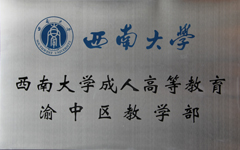 西南大学
西南大学成人高等教育
渝中区教学部